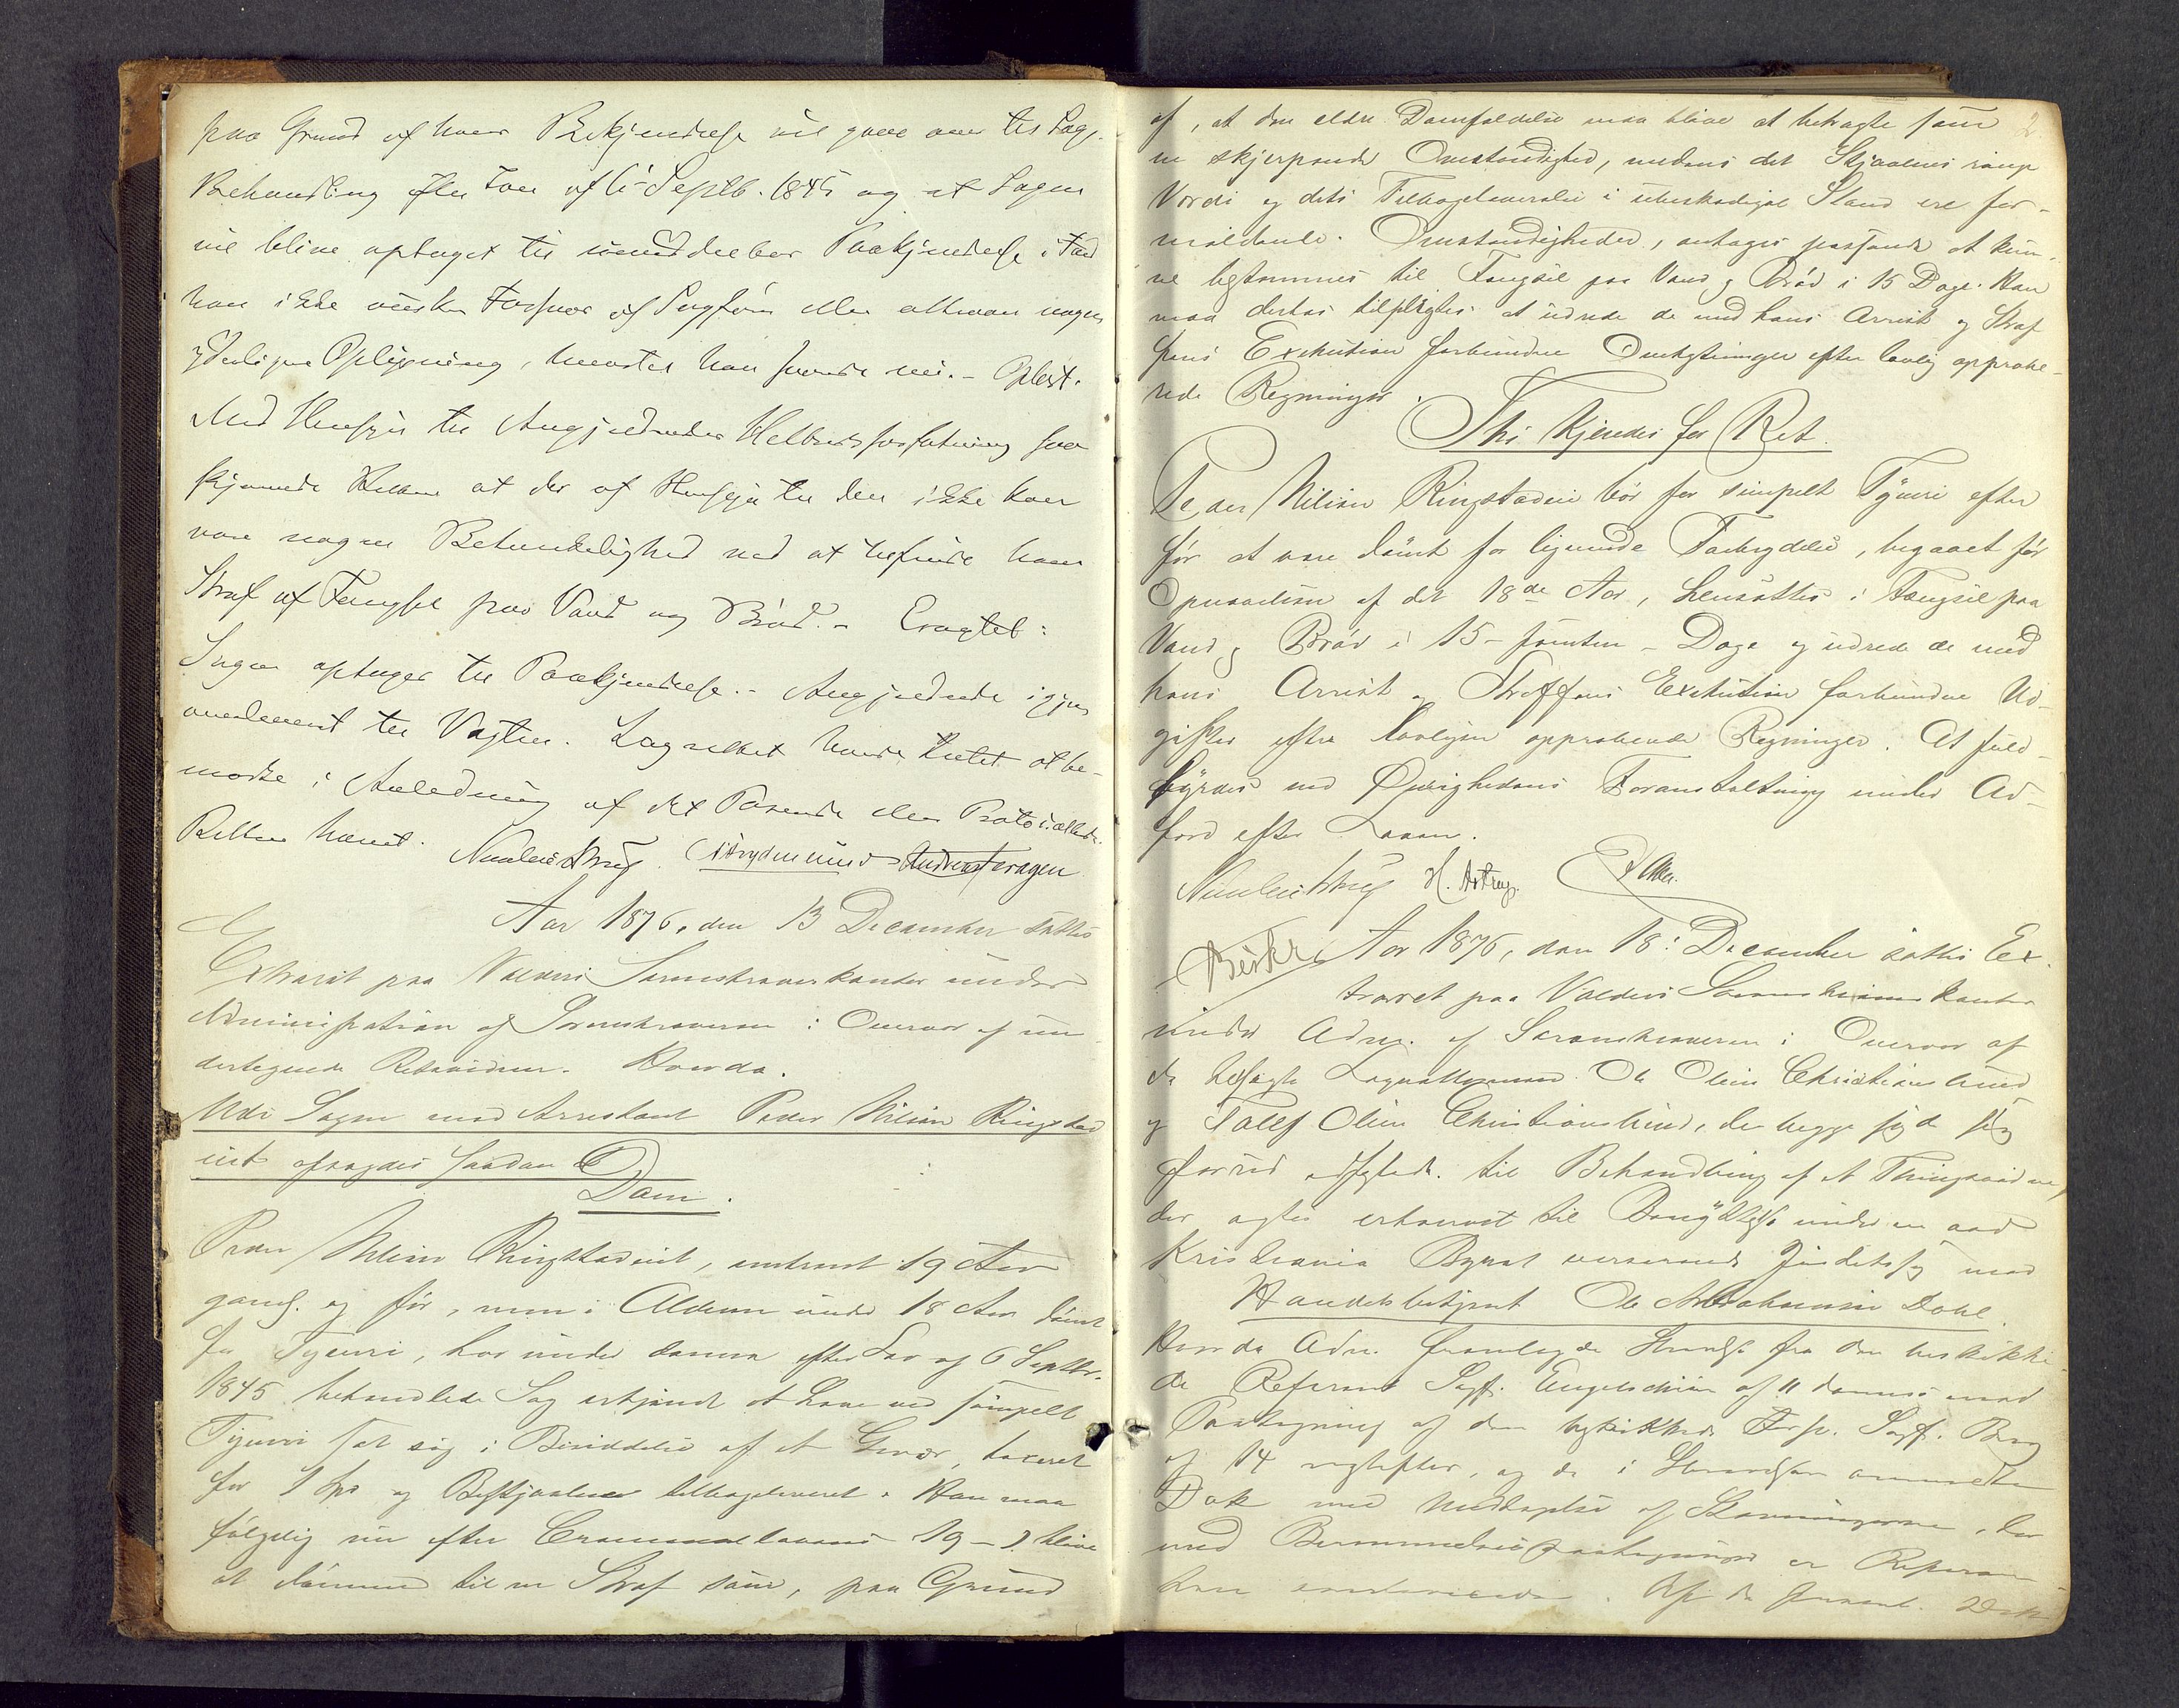 paa Grund af hans Bekjendelse vil gaae over til Sags
Behandling efter Lov af 6 Septb. 1845 og at Sagen
vil blive optaget til umiddelbar Paakjendelse i Fald
han ikke ønsker Forsvar af Sagfører eller attraar nogen
yderligere Oplysning, hvortil han svarede nei. - Oplæst.
Med Hensyn til Angjeldendes Helbredsforfatning saa
skjønnede Retten at der af Hensyn til den ikke kan
være nogen Betænkelighed ved at lade hans
Straf af Fængsel paa Vand og Brød. - Eragtet:
Sagen optages til Paakjendelse. - Angjeldende igjen
overleveret til Vagten. Lagrettet havde Intet at be-
mærke i Anledning af det Passerede eller Protocollerede.
Retten hævet.
Aar 1876, den 13 December sattes
Extraret paa Valders Sorenskriverkontor under
Administration af Sorenskriveren i Overvær af un
dertegnede Retsvidner. Hvorda.
Udi Sagen mod Arrestant Peder Nilsen Ringstad
eiet afsagdes saadan
Dom.
Peder Nilsen Ringstadeiet, omtrent 19 Aar
gaml. og før, men i Alderen under 18 Aar dømt
for Tyveri, har under denne efter Lov af 6 Septbr.
1845 behandlede Sag erkjendt at have ved simpelt
Tyveri sat sig i Besiddelse af et Gevær, taxeret
for 1 Spd og Bestjaalne tilbageleveret. Han maa
følgelig nu efter Criminallovens 19 - 1 blive
at dømme til en Straf som, paa Grund
af, at den ældre Domfældelse maa blive at betragte som
en skjerpende Omstændighed, medens det Stjaalnes ringe
Værdi og dets Tilbageleverelse i ubeskadiget Stand ere for-
mildende Omstændigheder, antages passende at kun-
ne bestemmes til Fængsel paa Vand og Brød i 15 Dage. Han
maa derhos tilpligtes at udrede de med hans Arrest og Straf
fens Exekution forbundne Omkostninger efter lovlig approbe-
rede Regninger.
Thi kjendes for Ret.
Peder Nilsen Ringstadeie bør for simpelt Tyveri efter
før at være dømt for lignende Forbrydelse, begaaet før
Opnaaelsen af det 18de Aar, hensættes i Fængsel paa
Vand og Brød i 15 - femten - Dage og udrede de med
hans Arrest og Straffens Exekution forbundne Ud-
gifter efter lovligen approberede Regninger. At fuld-
byrdes ved Øvrighedens Foranstaltning under Ad-
færd efter Loven.
H. Astrup.
Beskr. Aar 1876, den 18: December sattes Ex
traret paa Valders Sorenskriverkontor
under Adm. af Sorenskriveren i Overvær af
de Lagrettesmænd Ole Olsen Christianslund
og Tollef Olsen Christianslund, der begge
til Behandling af et Thingsvidne,
der agtes erhvervet til Benyttelse under en ved
Kristiania Byret verserende Justitssag mod
Handelsbetjent Ole Abrahamsen Dokl.
Hvorda Adm. fremlagde Skrivelse fra den beskikke-
de Referent Sagf. Engelschiøn af 11 dennes med
Paategning af den beskikkede Sagf. Berg
af 14 næstefter, og de i Skrivelsen
Dok. med Undtagelse af Stævningerne, der
med Berammelsespaategning er